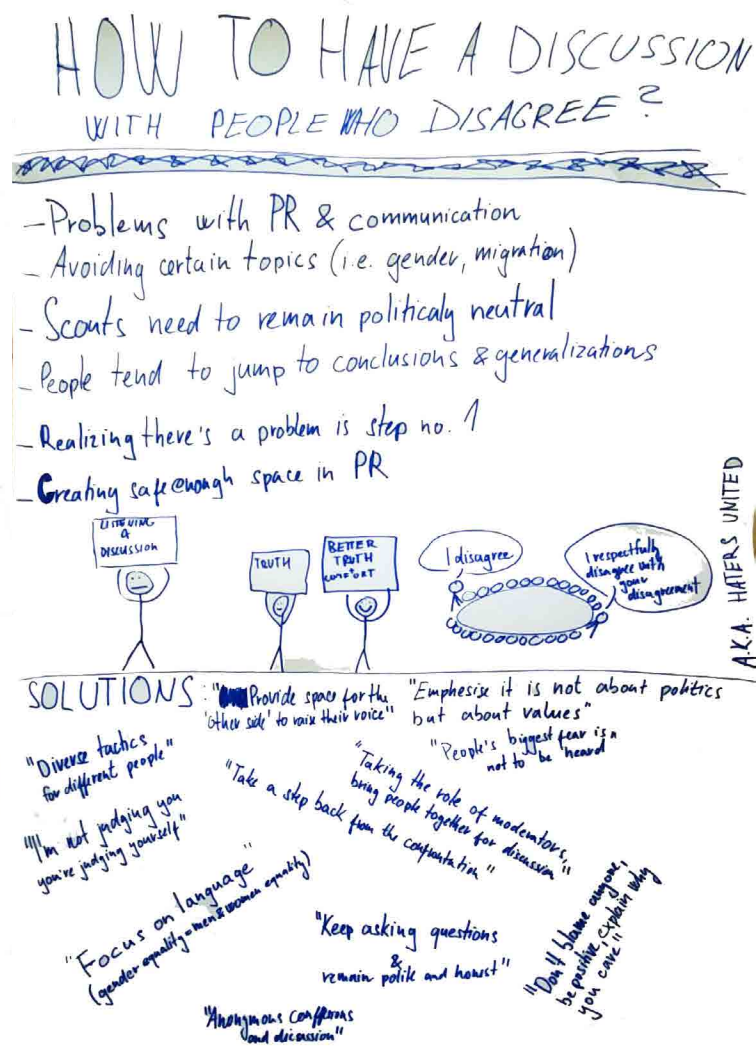 HOW TO HAVE A DISCUSSION
WITH PEOPLE WHO DISAGREE?
- Problems with PR & communication
- Avoiding certain topics (i.e. gender, migration)
- Scouts need to remain politicaly neutral
- People tend to jump to conclusions & generalizations
- Realizing there's a problem is step no. 1
- Creating safe enough space in PR
LISTENING
&
DISCUSSION
TRUTH
BETTER
TRUTH
COMFORT
I disagree
I respectfully
disagree with
your
disagreement
A.K.A. HATERS UNITED
SOLUTIONS:
"Provide space for the
'other side' to raise their voice"
"Emphesise it is not about politics
but about values"
"People's biggest fear is
not to be heard"
"Diverse tactics
for different people"
"Taking the role of moderators,
bring people together for discussion"
"Take a step back from the confrontation"
"I'm not judging you
you're judging yourself"
"Focus on language"
(gender equality = men & women equality)
"Keep asking questions
&
remain polite and honest"
"Don't blame anyone,
be positive, explain why
you care"
"Anonymous
and